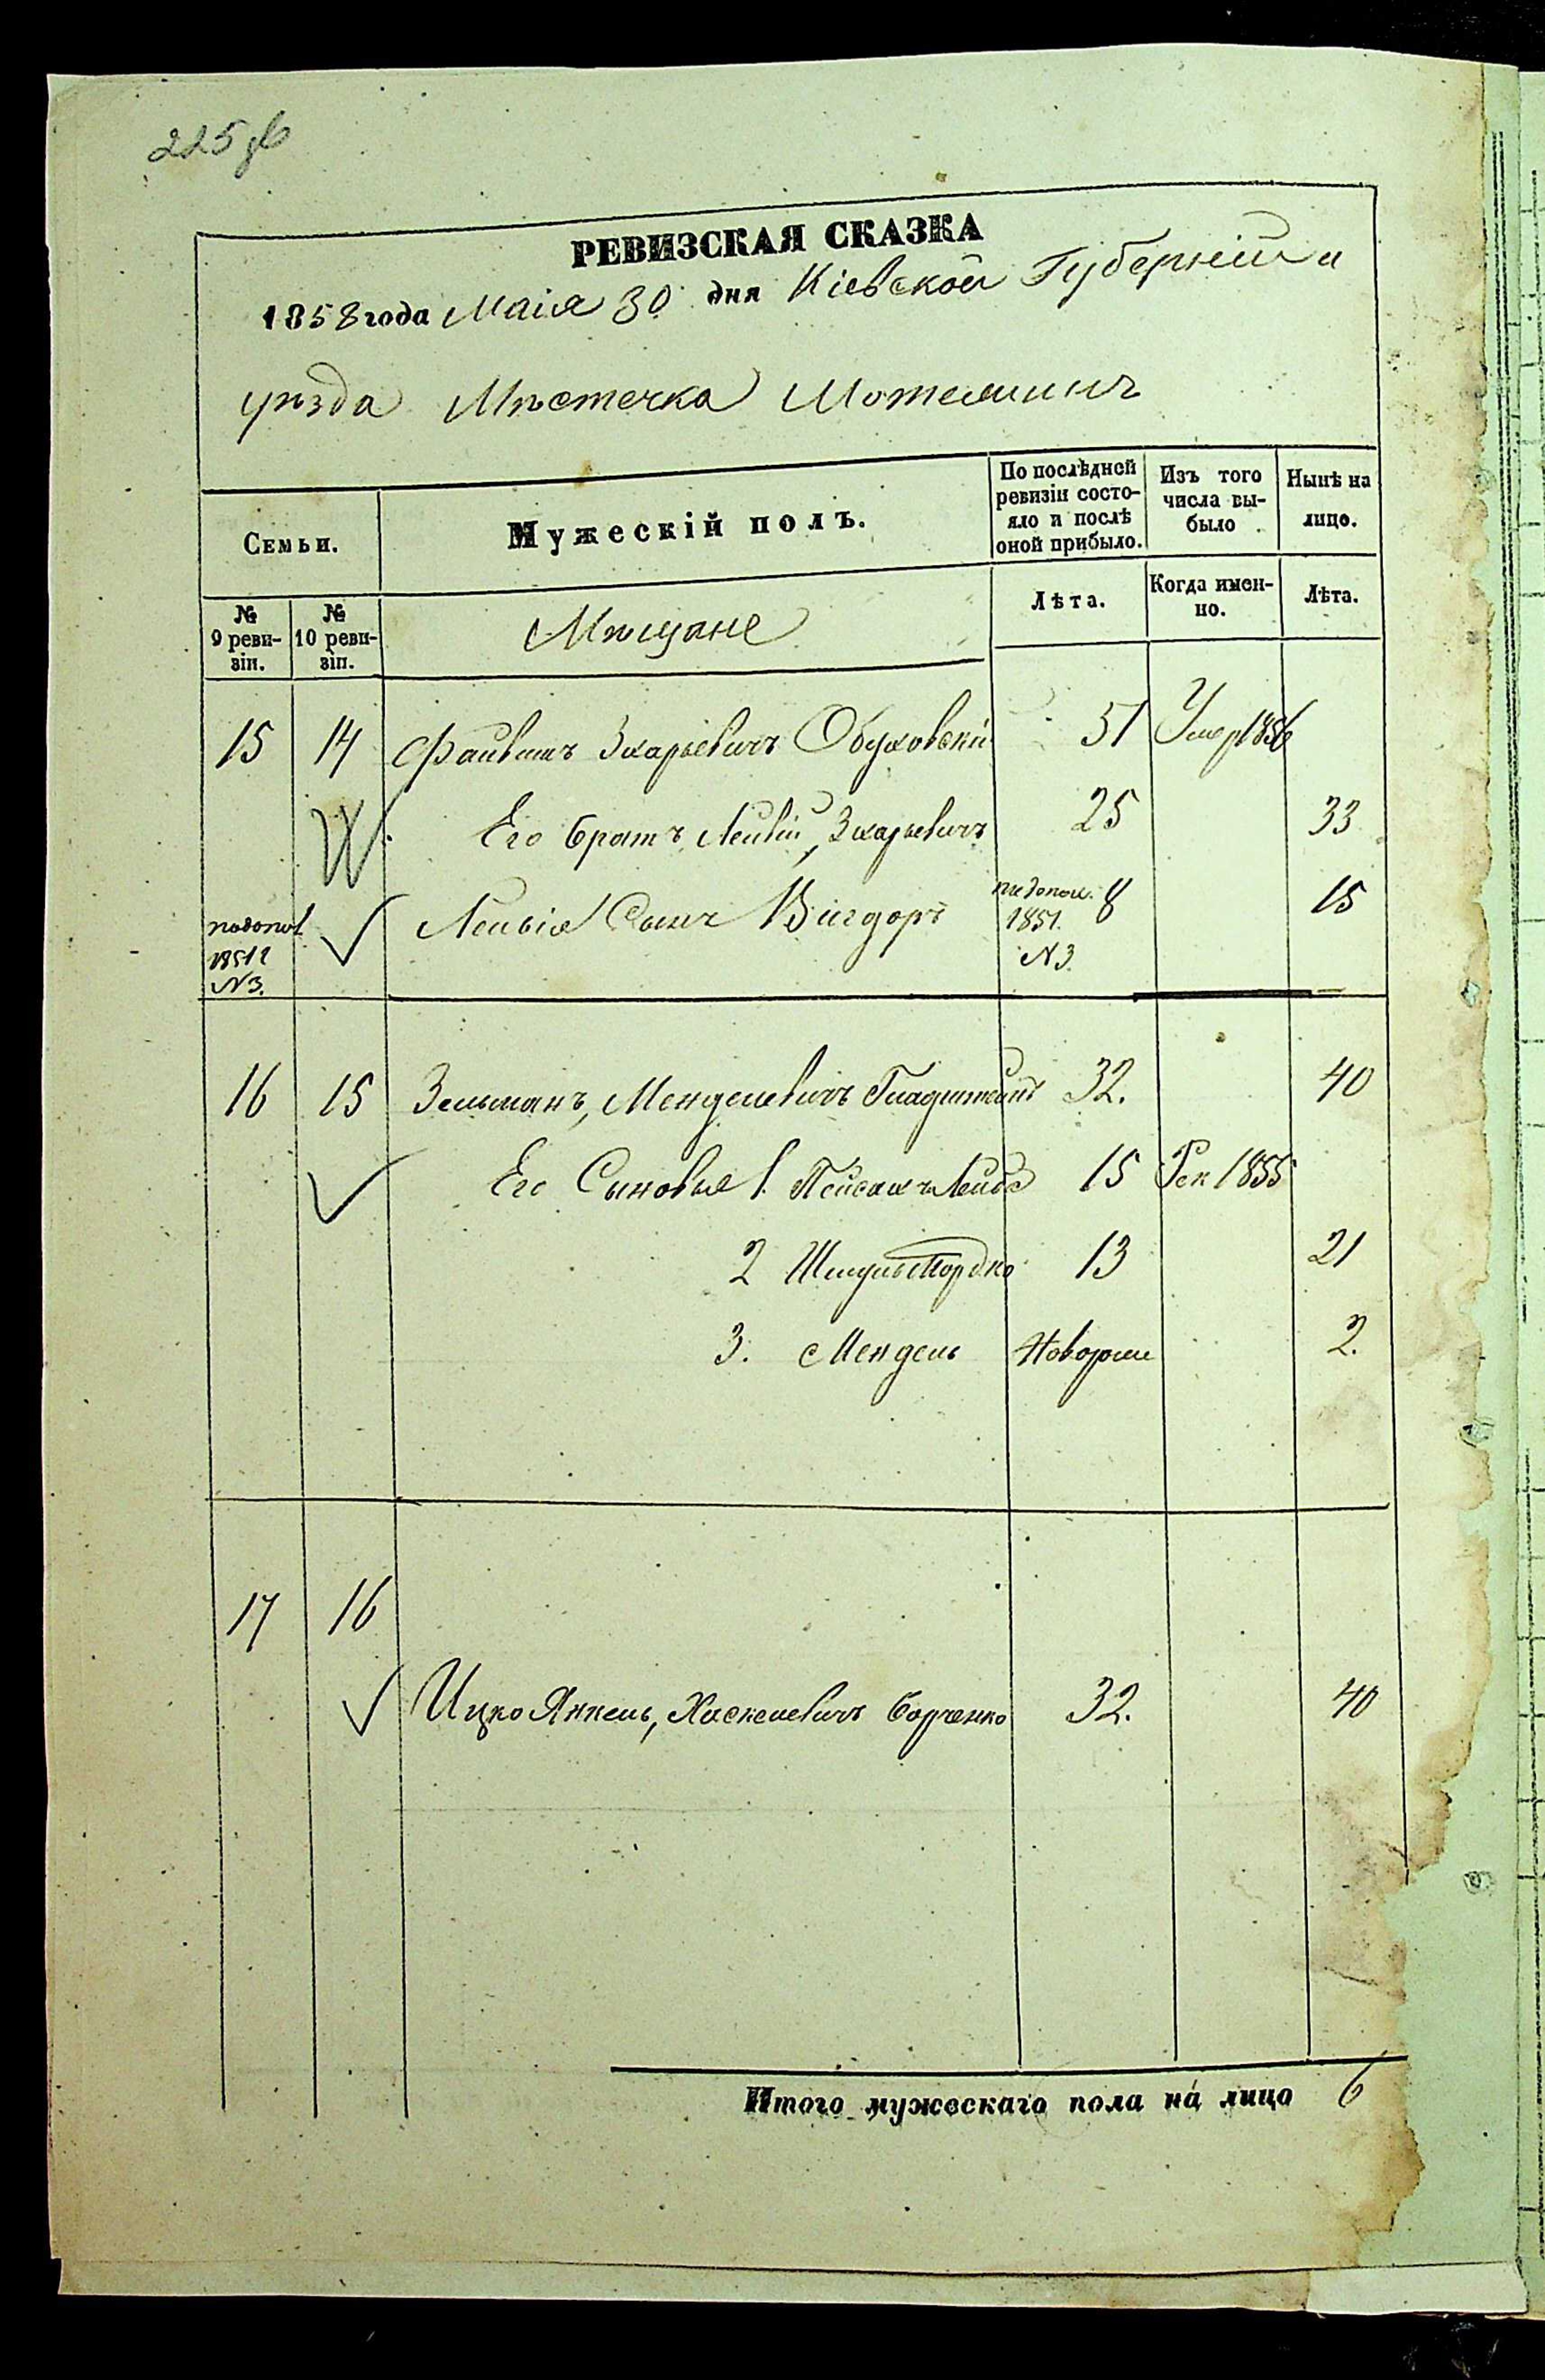 225об
РЕВИЗСКАЯ СКАЗКА
1858 года Маія 30 дня Кіевской Губерніи и
уѣзда Мѣстечка Мотежинъ
Семьи.
Мужескій полъ.
По послѣдней ревизіи состояло и послѣ оной прибыло.
Изъ того числа выбыло
Нынѣ на лицо.
№ 9 ревизіи.
№ 10 ревизіи.
Мѣщане
Лѣта.
Когда именно.
Лѣта.
15 14 Файвишъ Зхарьевичъ Обуховскій 51 Умер 1856
Его братъ Лейвій, Зхарьевичъ 25 33
подопол. 1851 г N3. Лейвія Сынъ Вигдоръ по допол. 1851. N3. 8 15
16 15 Зельманъ, Менделевичъ 32. 40
Его Сыновья 1. Пейсахъ Лейба 15 Рек 1855
2 Шмуль Мордко 13 21
3. Мендель Новорож 2.
17 16
Ицко Янкель, Хаскелевичъ Борченко 32. 40
Итого мужескаго пола на лицо 6